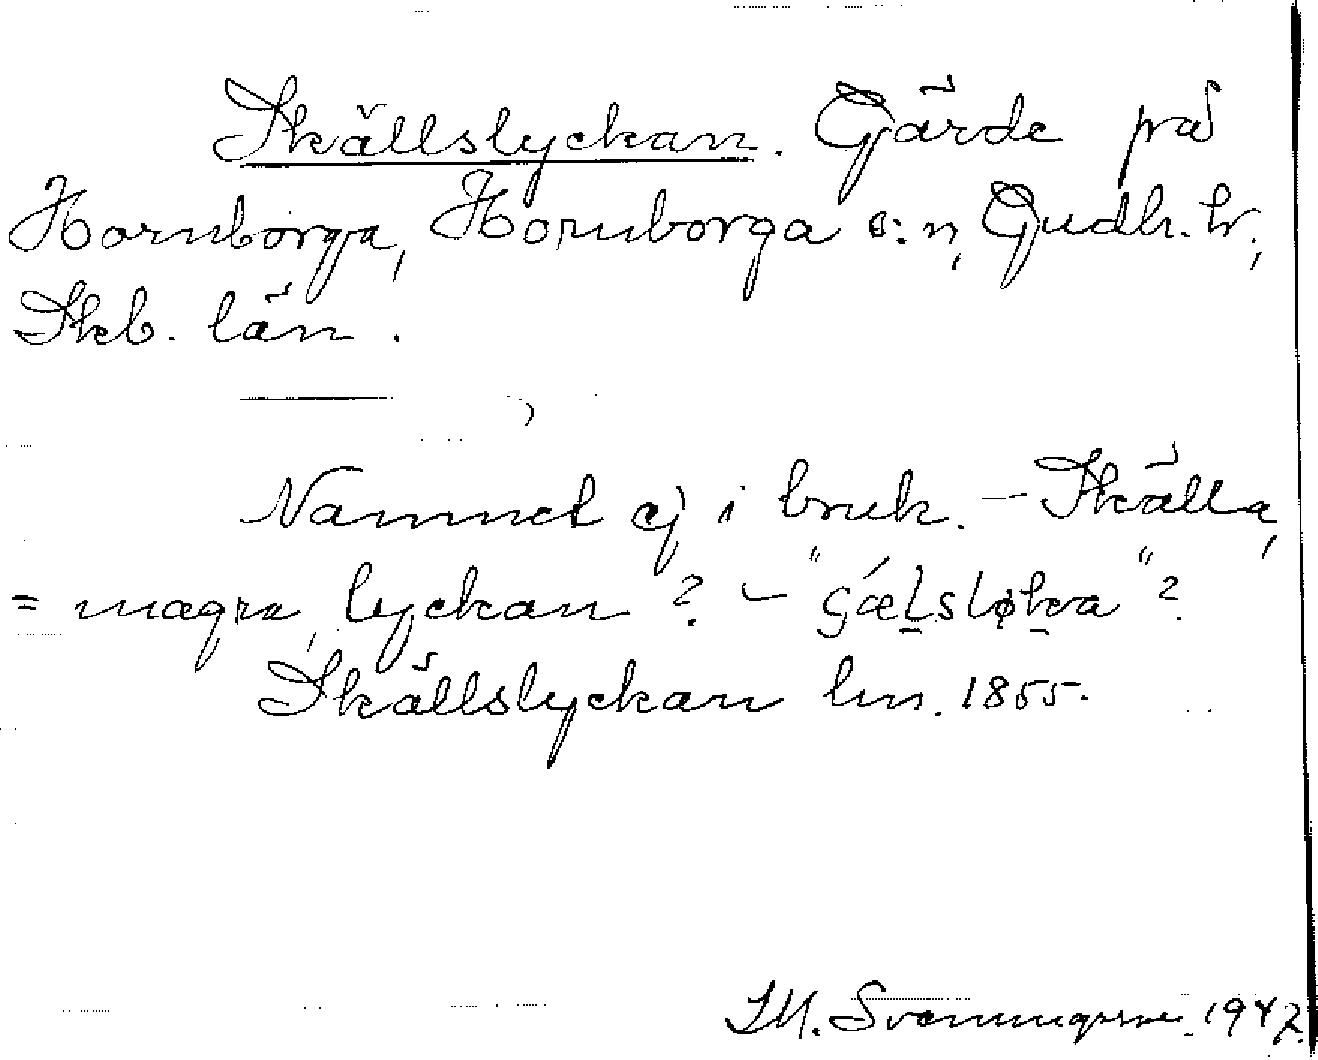 Skällslyckan. Gärde på
Hornborga, Hornborga s:n, Gudh. hr,
Skb. län.
Namnet ej i bruk. - Skälla,
= magra, lyckan? - "gǽlsløka"?
Skällslyckan lm. 1855.
1947